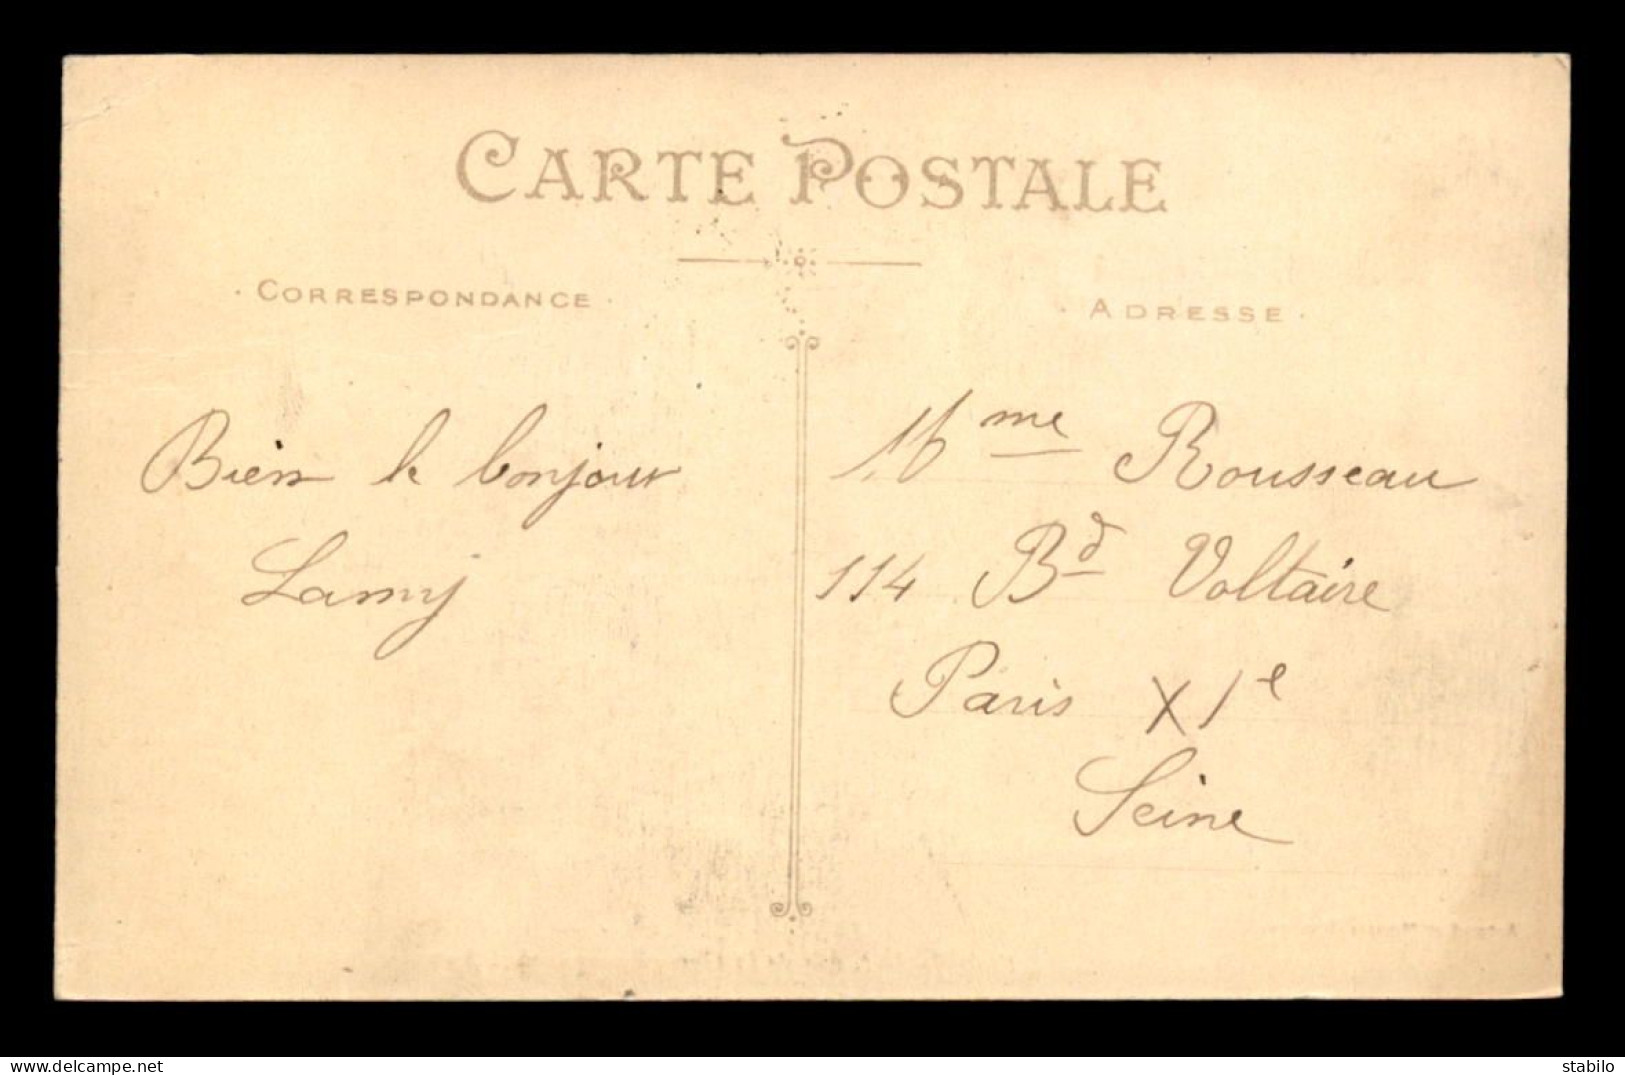 CARTE POSTALE
· CORRESPONDANCE ·
Bien le bonjour
Lamy
· ADRESSE ·
Mme Rousseau
114 Bd Voltaire
Paris XIe
Seine
the-millcards
stabilo